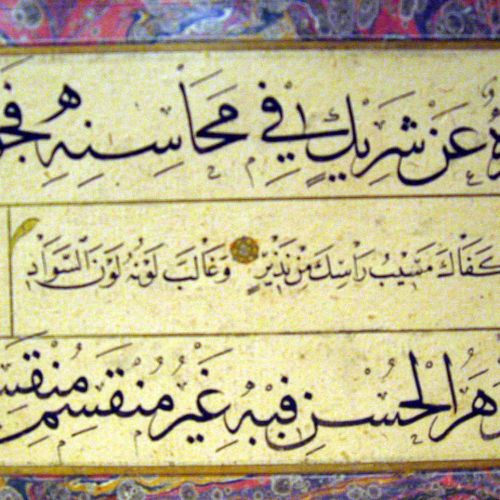 عَنْ شَرِيكٍ فِي مَحَاسِنِهِ
كَفَاكَ مَشِيبُ رَاسِكَ مِنْ نَذِيرٍ وَغَالَبَ لَوْنُهُ لَوْنَ السَّوَادِ
هَرُ الْحُسْنِ فِيهِ غَيْرُ مُنْقَسِمِ